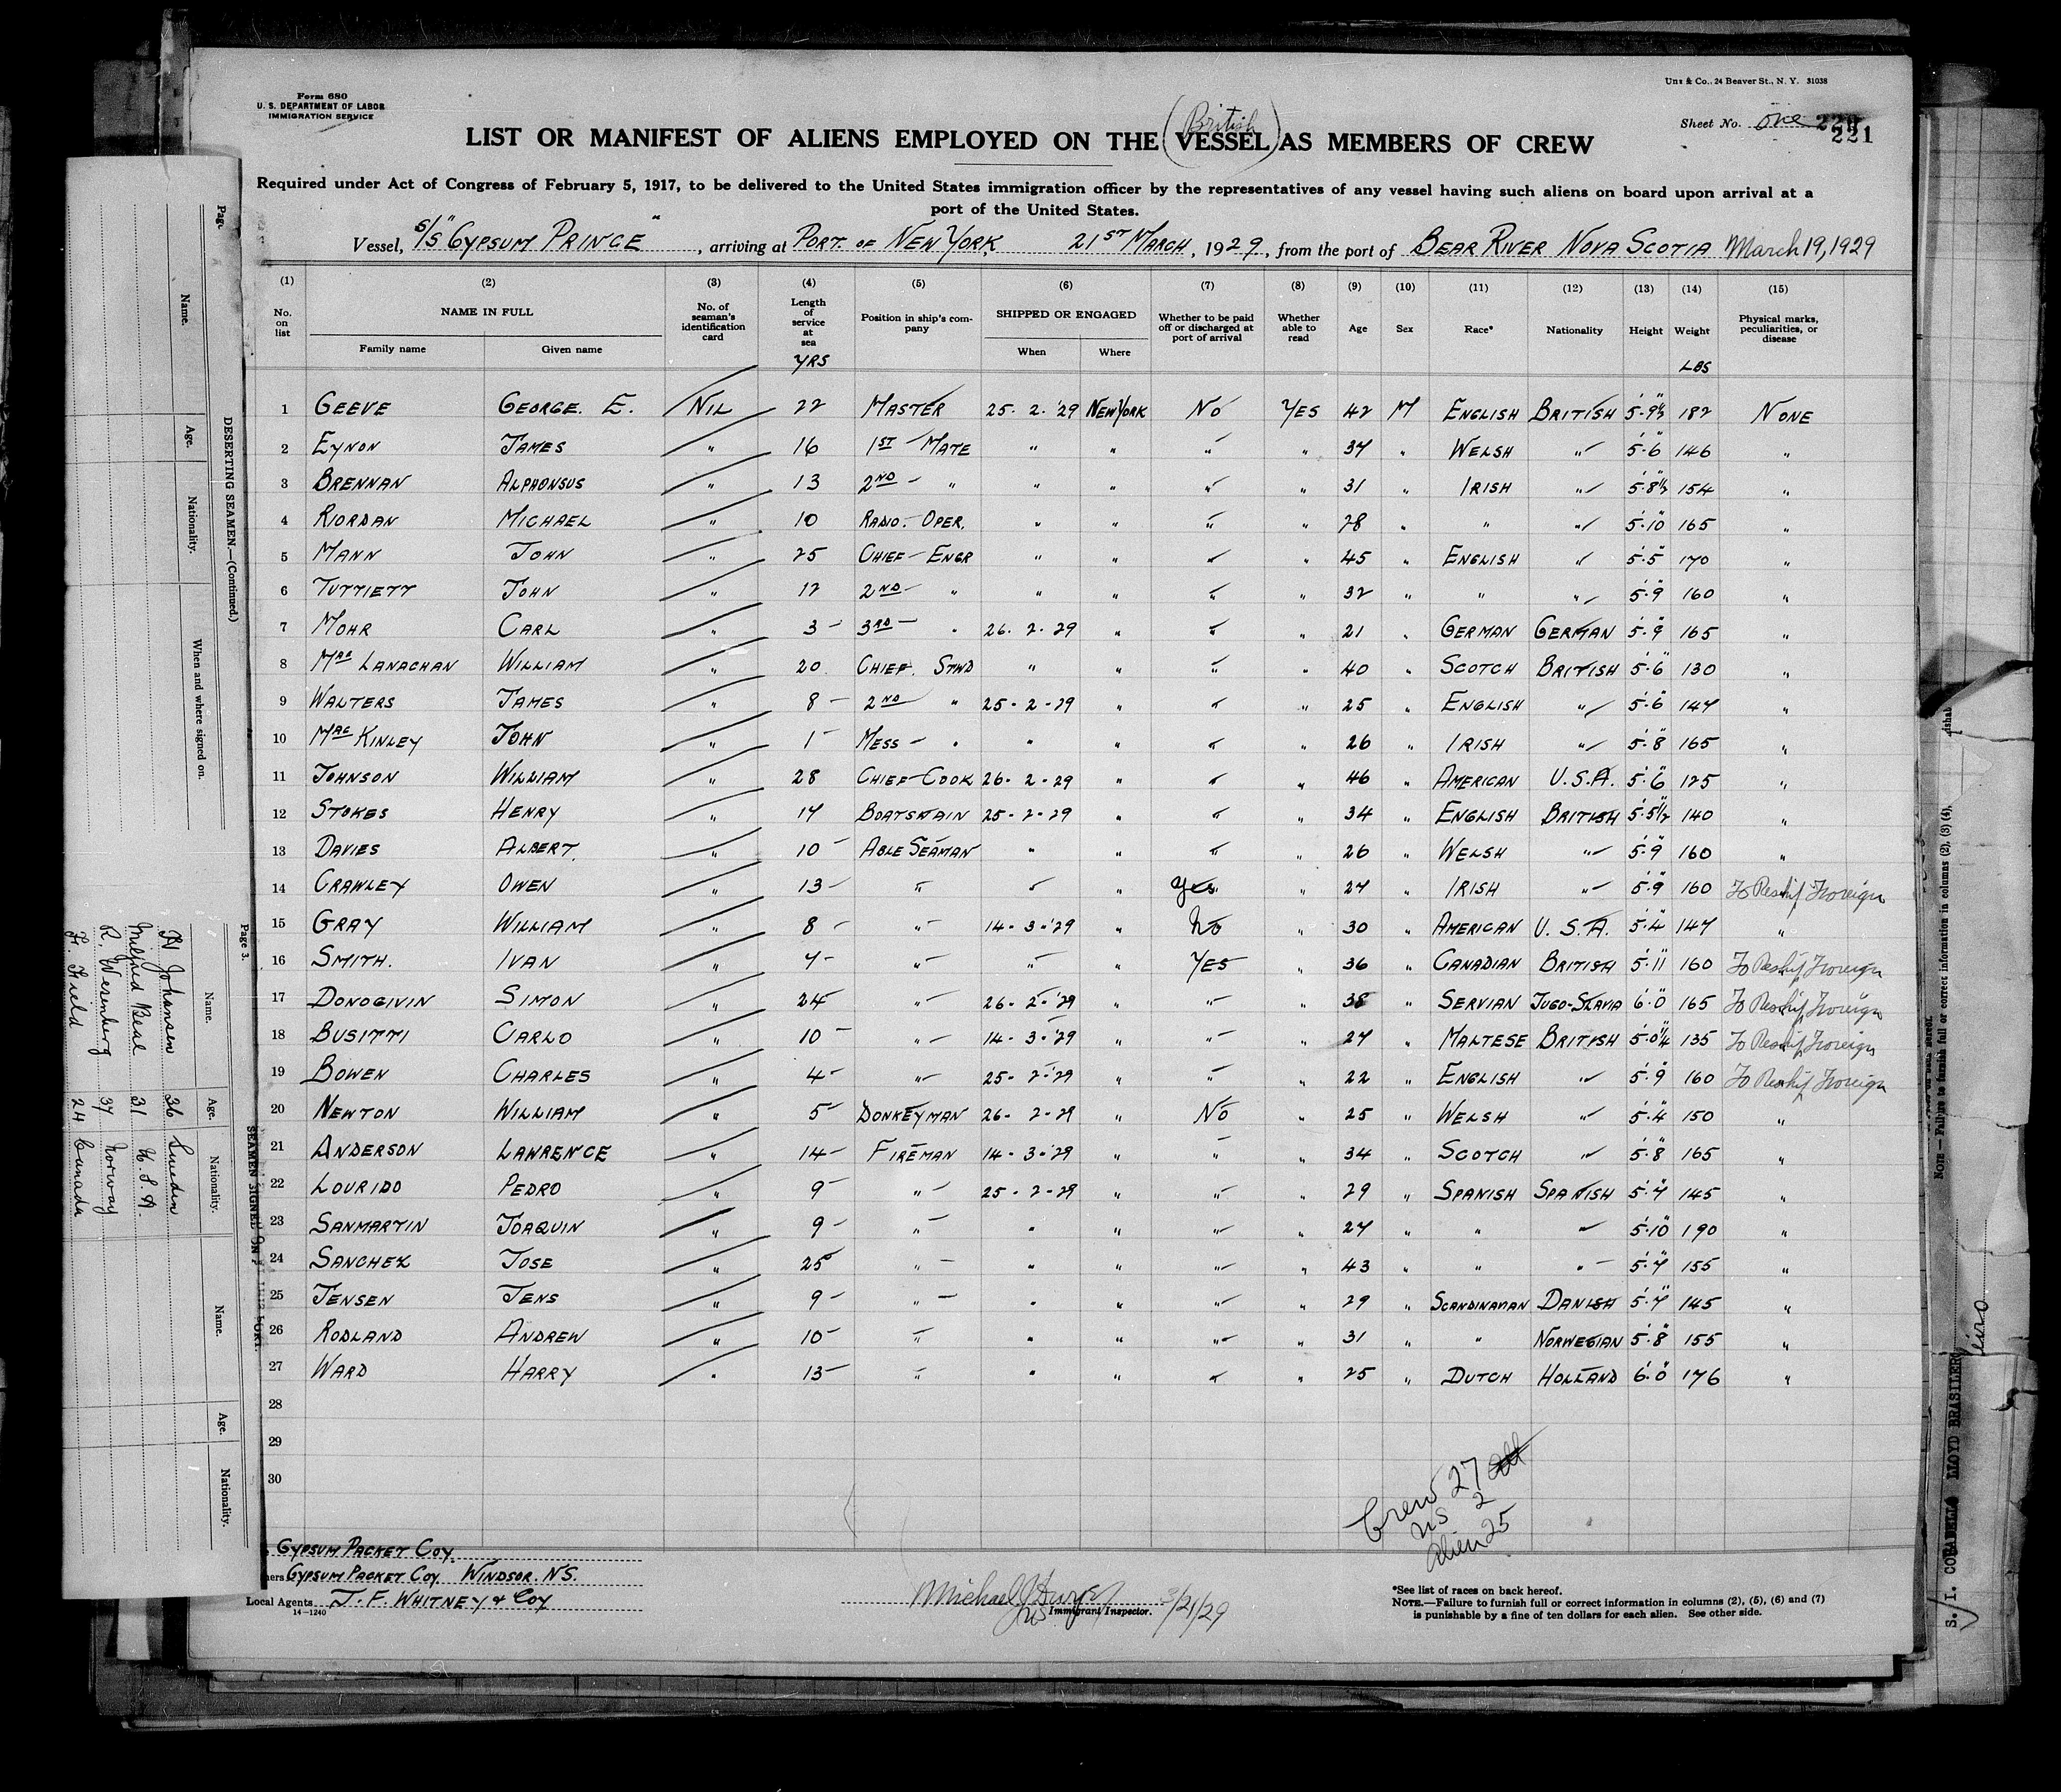 Form 680
U. S. DEPARTMENT OF LABOR
IMMIGRATION SERVICE
Unz & Co., 24 Beaver St., N. Y. 31038
Sheet No. one 221
(British)
LIST OR MANIFEST OF ALIENS EMPLOYED ON THE VESSEL AS MEMBERS OF CREW
Required under Act of Congress of February 5, 1917, to be delivered to the United States immigration officer by the representatives of any vessel having such aliens on board upon arrival at a
port of the United States.
Vessel, S/S "GYPSUM PRINCE", arriving at PORT OF NEW YORK, 21ST MARCH, 1929, from the port of BEAR RIVER NOVA SCOTIA March 19, 1929
(1) No. on list (2) NAME IN FULL Family name Given name (3) No. of seaman's identification card (4) Length of service at sea YRS (5) Position in ship's company (6) SHIPPED OR ENGAGED When Where (7) Whether to be paid off or discharged at port of arrival (8) Whether able to read (9) Age (10) Sex (11) Race* (12) Nationality (13) Height (14) Weight LBS (15) Physical marks, peculiarities, or disease
1 GEEVE GEORGE. E. NIL 22 MASTER 25. 2. '29 NEW YORK NO YES 42 M ENGLISH BRITISH 5'.9½" 182 NONE
2 EYNON JAMES " 16 1ST MATE " " " " 37 " WELSH " 5'.6" 146 "
3 BRENNAN ALPHONSUS " 13 2ND " " " " " 31 " IRISH " 5'.8½" 154 "
4 RIORDAN MICHAEL " 10 RADIO. OPER. " " " " 28 " " " 5'.10" 165 "
5 MANN JOHN " 25 CHIEF ENGR " " " " 45 " ENGLISH " 5'.5" 170 "
6 TUTTIETT JOHN " 12 2ND " " " " " 32 " " " 5'.9" 160 "
7 MOHR CARL " 3 3RD " 26. 2. 29 " " " 21 " GERMAN GERMAN 5'.9" 165 "
8 LANACHAN WILLIAM " 20 CHIEF. STWD " " " " 40 " SCOTCH BRITISH 5'.6" 130 "
9 WALTERS JAMES " 8 2ND " 25-2-29 " " " 25 " ENGLISH " 5'.6" 147 "
10 MacKINLEY JOHN " 1 MESS " " " " " 26 " IRISH " 5'.8" 165 "
11 JOHNSON WILLIAM " 28 CHIEF COOK 26-2-29 " " " 46 " AMERICAN U.S.A. 5'.6" 125 "
12 STOKES HENRY " 17 BOATSWAIN 25-2-29 " " " 34 " ENGLISH BRITISH 5'.5½" 140 "
13 DAVIES ALBERT. " 10 ABLE SEAMAN " " " " 26 " WELSH " 5'.9" 160 "
14 CRAWLEY OWEN " 13 " " " Yes " 27 " IRISH " 5'.9" 160 To Reship Foreign
15 GRAY WILLIAM " 8 " 14-3-'29 " No " 30 " AMERICAN U.S.A. 5'.4" 147 "
16 SMITH. IVAN " 7 " " " YES " 36 " CANADIAN BRITISH 5'.11" 160 To Reship Foreign
17 DONOGIVIN SIMON " 24 " 26-2-'29 " " " 38 " SERVIAN JUGO-SLAVIA 6'.0" 165 To Reship Foreign
18 BUSITTI CARLO " 10 " 14-3-'29 " " " 27 " MALTESE BRITISH 5'.0¼" 135 To Reship Foreign
19 BOWEN CHARLES " 4 " 25-2-'29 " " " 22 " ENGLISH " 5'.9" 160 To Reship Foreign
20 NEWTON WILLIAM " 5 DONKEYMAN 26-2-29 " NO " 25 " WELSH " 5'.4" 150 "
21 ANDERSON LAWRENCE " 14 FIREMAN 14-3-'29 " " " 34 " SCOTCH " 5'.8" 165 "
22 LOURIDO PEDRO " 9 " 25-2-29 " " " 29 " SPANISH SPANISH 5'.7" 145 "
23 SANMARTIN JOAQUIN " 9 " " " " " 27 " " " 5'.10" 190 "
24 SANCHEZ JOSE " 25 " " " " " 43 " " " 5'.7" 155 "
25 JENSEN JENS " 9 " " " " " 29 " SCANDINAVIAN DANISH 5'.7" 145 "
26 RODLAND ANDREW " 10 " " " " " 31 " " NORWEGIAN 5'.8" 155 "
27 WARD HARRY " 13 " " " " " 25 " DUTCH HOLLAND 6'.0" 176 "
28
29
30
Crew 27 all
US 2
Alien 25
GYPSUM PACKET COY.
GYPSUM PACKET COY. WINDSOR. N.S.
Local Agents J. F. WHITNEY & COY
14-1240
Michael J. 3/21/29
Immigrant Inspector.
*See list of races on back hereof.
NOTE.—Failure to furnish full or correct information in columns (2), (5), (6) and (7)
is punishable by a fine of ten dollars for each alien. See other side.
Page
DESERTING SEAMEN.—(Continued)
Name. Age. Nationality. When and where signed on.
Page 3.
SEAMEN SIGNED ON
Name. Age. Nationality. Name. Age. Nationality.
Johansen 36 Sweden
Milford Beal 31 U.S.A.
R. Wesenberg 37 Norway
F. Field 24 Canada
NOTE — Failure to furnish full or correct information in columns (2), (3) (4),
LLOYD BRASILERO